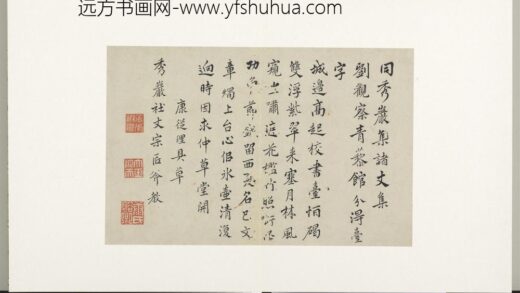 远方书画网-www.yfshuhua.com
同秀巖集諸丈集
劉觀察青藜館分得臺
字
城邊高起校書臺恒碣
雙浮紫翠來塞月林風
窺嘯花檻照
功留西名已文
章燭上台心侶氷壺清澈
迥時因來仲草堂開
康從理具草
秀巖社丈宗匠斧教